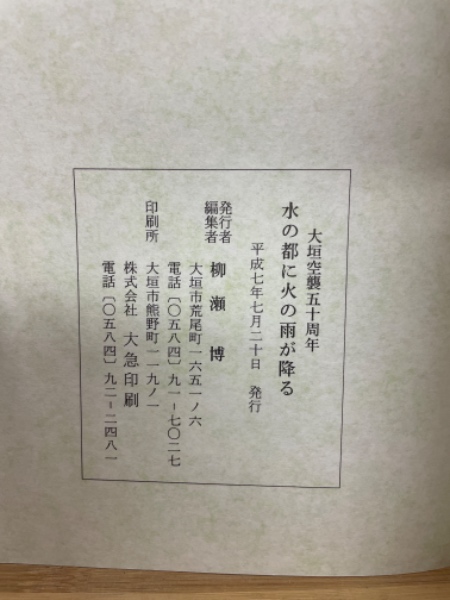 大垣空襲五十周年
水の都に火の雨が降る
平成七年七月二十日　発行
発行者
編集者　柳瀬　博
大垣市荒尾町一六五一ノ六
電話〔〇五八四〕九一−七〇二七
印刷所　大垣市熊野町一一九ノ一
株式会社　大急印刷
電話〔〇五八四〕九二−二四八一